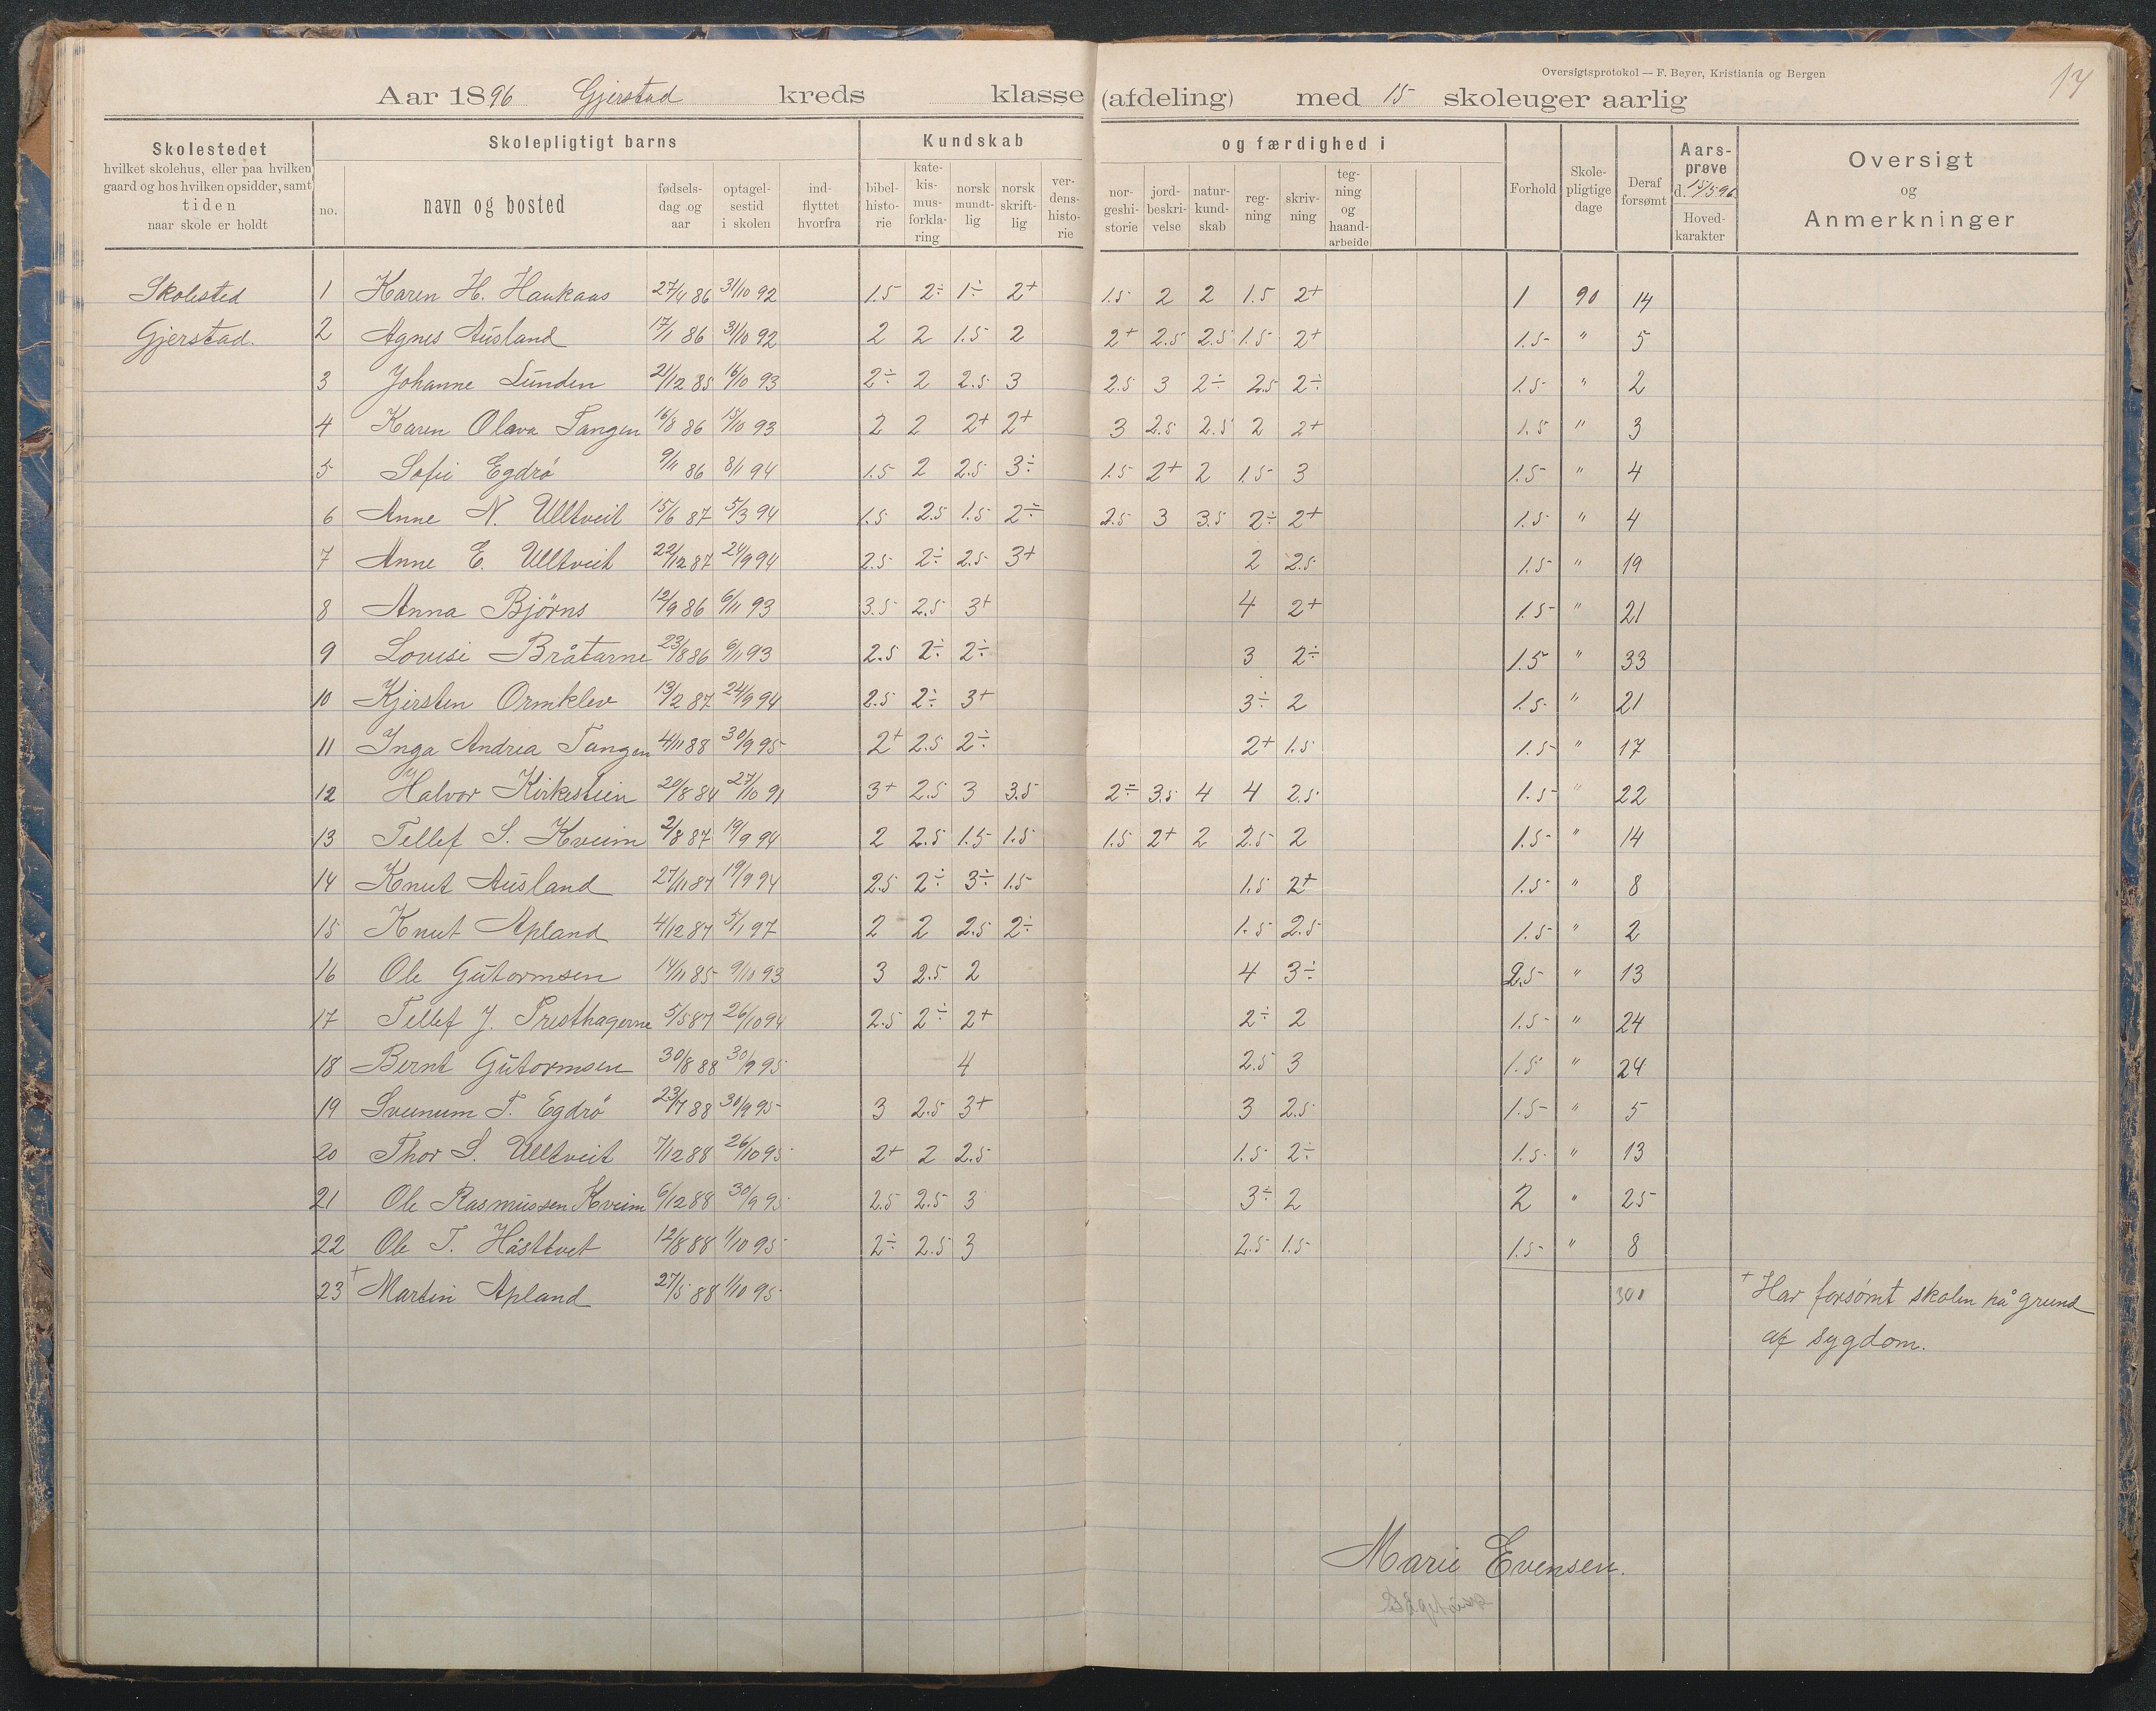 Oversigtsprotokol — F. Beyer, Kristiania og Bergen
17
Aar 1896 Gjerstad kreds klasse (afdeling) med 15 skoleuger aarlig
Skolestedet
hvilket skolehus, eller paa hvilken
gaard og hos hvilken opsidder, samt
tiden
naar skole er holdt
Skolepligtigt barns
no.
navn og bosted
fødsels-
dag og
aar
optagel-
sestid
i skolen
ind-
flyttet
hvorfra
Kundskab
bibel-
histo-
rie
kate-
kis-
mus-
forkla-
ring
norsk
mundt-
lig
norsk
skrift-
lig
ver-
dens-
histo-
rie
og færdighed i
nor-
geshi-
storie
jord-
beskri-
velse
natur-
kund-
skab
reg-
ning
skriv-
ning
teg-
ning
og
haand-
arbeide
Forhold
Skole-
pligtige
dage
Deraf
forsømt
Aars-
prøve
d. 15/5 96
Hoved-
karakter
Oversigt
og
Anmerkninger
Skolested 1 Karen H. Haukaas 27/4 86 31/10 92 1.5 2÷ 1÷ 2+ 1.5 2 2 1.5 2+ 1 90 14
Gjerstad. 2 Agnes Ausland 17/1 86 31/10 92 2 2 1.5 2 2+ 2.5 2.5 1.5 2+ 1.5 " 5
3 Johanne Lunden 21/12 85 16/10 93 2÷ 2 2.5 3 2.5 3 2÷ 2.5 2÷ 1.5 " 2
4 Karen Olava Tangen 16/8 86 15/10 93 2 2 2+ 2+ 3 2.5 2.5 2 2+ 1.5 " 3
5 Sofie Egdrø 9/11 86 8/1 94 1.5 2 2.5 3÷ 1.5 2+ 2 1.5 3 1.5 " 4
6 Anne N. Ulltveit 15/6 87 5/3 94 1.5 2.5 1.5 2÷ 2.5 3 3.5 2÷ 2+ 1.5 " 4
7 Anne E. Ulltveit 22/12 87 24/9 94 2.5 2÷ 2.5 3+ 2 2.5 1.5 " 19
8 Anna Bjørns 12/9 86 6/11 93 3.5 2.5 3+ 4 2+ 1.5 " 21
9 Lovise Bråtarne 23/8 86 6/11 93 2.5 2÷ 2÷ 3 2÷ 1.5 " 33
10 Kjersten Ormklev 13/2 87 24/9 94 2.5 2÷ 3+ 3÷ 2 1.5 " 21
11 Inga Andrea Tangen 4/11 88 30/9 95 2+ 2.5 2÷ 2+ 1.5 1.5 " 17
12 Halvor Kirkestien 20/8 84 27/10 91 3+ 2.5 3 3.5 2÷ 3.5 4 4 2.5 1.5 " 22
13 Tellef S. Kveim 2/8 87 19/9 94 2 2.5 1.5 1.5 1.5 2+ 2 2.5 2 1.5 " 14
14 Knut Ausland 27/11 87 19/9 94 2.5 2÷ 3÷ 1.5 1.5 2+ 1.5 " 8
15 Knut Apland 4/12 87 5/1 97 2 2 2.5 2÷ 1.5 2.5 1.5 " 2
16 Ole Gutormsen 14/11 85 9/10 93 3 2.5 2 4 3÷ 2.5 " 13
17 Tellef J. Presthagerne 5/5 87 26/10 94 2.5 2÷ 2+ 2÷ 2 1.5 " 24
18 Bernt Gutormsen 30/8 88 30/9 95 4 2.5 3 1.5 " 24
19 Sveinum T. Egdrø 23/7 88 30/9 95 3 2.5 3+ 3 2.5 1.5 " 5
20 Thor S. Ulltveit 7/12 88 26/10 95 2+ 2 2.5 1.5 2÷ 1.5 " 13
21 Ole Rasmussen Kveim 6/12 88 30/9 95 2.5 2.5 3 3÷ 2 2 " 25
22 Ole T. Håsttvet 12/8 88 1/10 95 2÷ 2.5 3 2.5 1.5 1.5 " 8
23 + Martin Apland 27/5 88 1/10 95 301 + Har forsømt skolen på grund
af sygdom.
Marie Evensen.